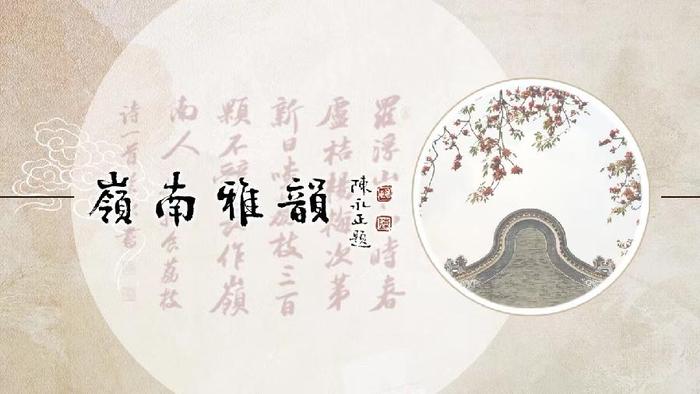 嶺南雅韻
陳永正題
羅浮山 時春
盧桔楊梅次第
新日 枝三百
顆不 作嶺
南人
食荔枝
詩一首 書